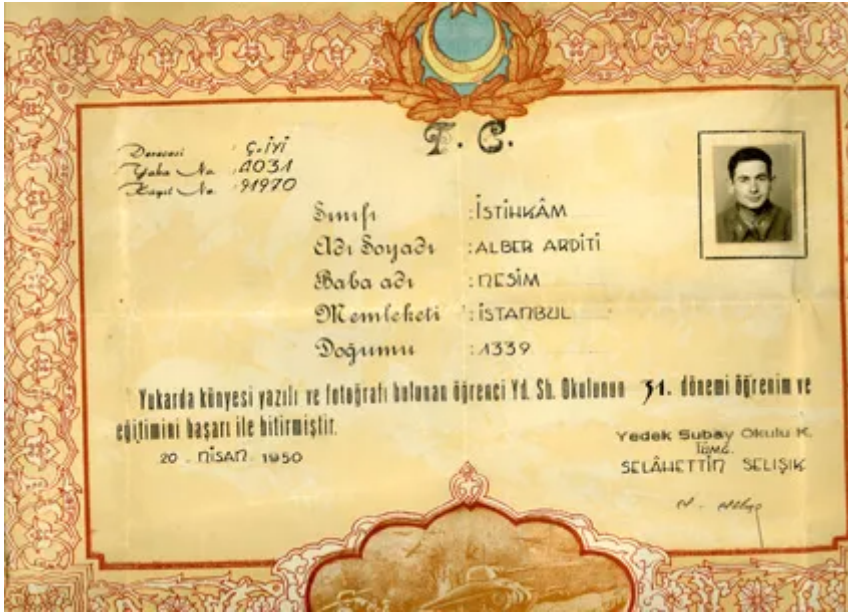 T. C.
Derecesi : Ç. İYİ
Yaka No : 4031
Kayıt No : 91970
Sınıfı : İSTİHKÂM
Adı Soyadı : ALBER ARDİTİ
Baba adı : NESİM
Memleketi : İSTANBUL
Doğumu : 1339
Yukarda künyesi yazılı ve fotoğrafı bulunan öğrenci Yd. Sb. Okulunun 31. dönemi öğrenim ve
eğitimini başarı ile bitirmiştir.
20 . NİSAN 1950
Yedek Subay Okulu K.
TÜMG.
SELÂHETTİN SELIŞIK